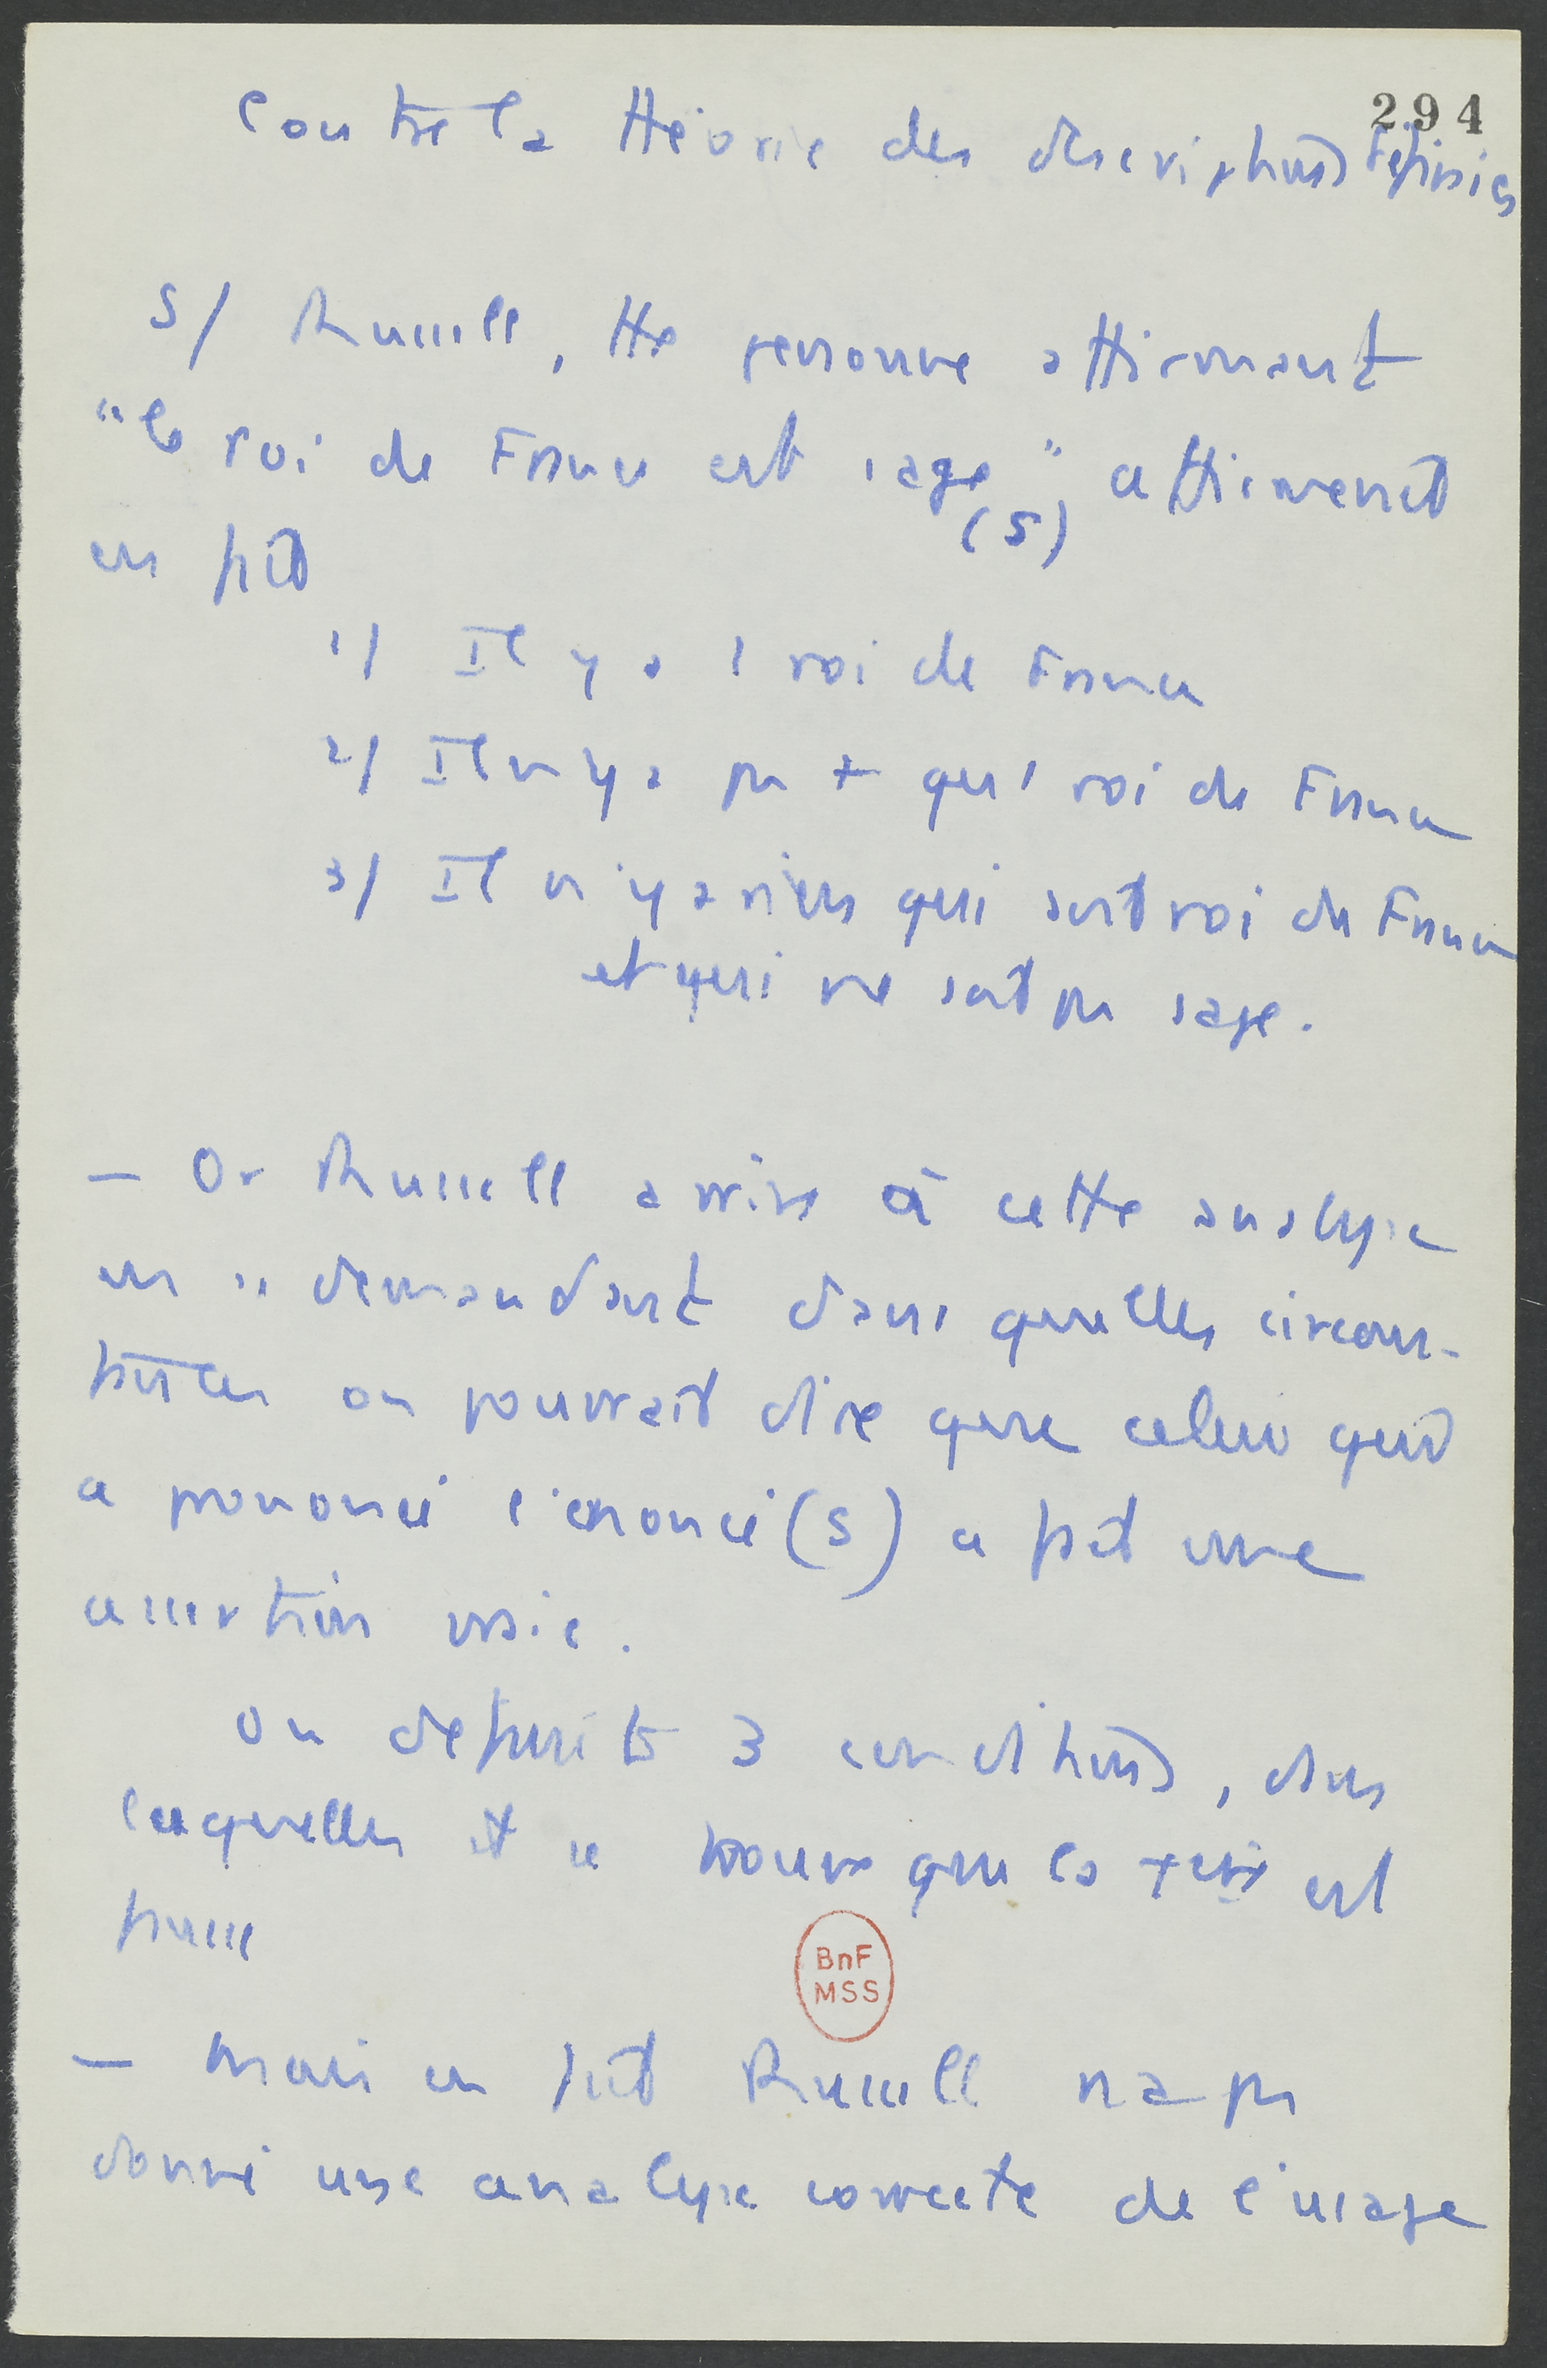 294
Contre la théorie des descriptions définies
S/ Russell, tte personne affirmant
"le roi de France est sage", affirmerait
(S)
en fait
1/ Il y a 1 roi de France
2/ Il n y a pas + qu' 1 roi de France
3/ Il n'y a rien qui soit roi de France
et qui ne soit pas sage.
— Or Russell arrive à cette analyse
en se demandant dans quelles circons-
tances on pourrait dire que celui qui
a prononcé l'énoncé (S) a fait une
assertion vraie.
On définit 3 conditions, dans
lesquelles il se trouve que la est
fausse
BnF
MSS
— Mais en fait Russell n a pas
donné une analyse correcte de l'usage